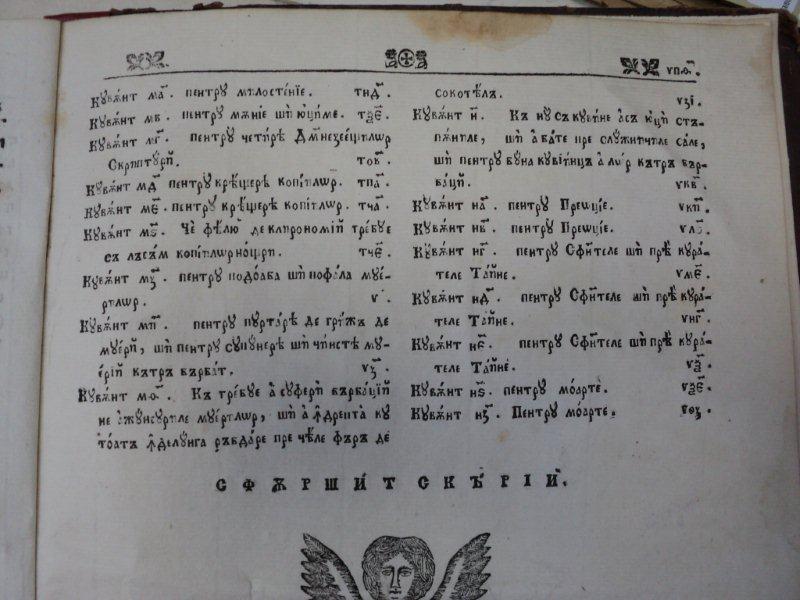 ѵп҃ѳ.
Кꙋвѫ́нт ма҃. пентрꙋ мѝлостені́е. тнд҃.
Кꙋвѫ́нт мв. пентрꙋ мѫ́нїе шѝ юціме. тѯє҃.
Кꙋвѫ́нт мг҃. пентрꙋ четѝре Дꙋмнезее́щилѡр
Скрѝптꙋрѝ. тов҃.
Кꙋвѫ́нт мд҃ пентрꙋ кре́щере копі́илѡр. тпа҃.
Кꙋвѫ́нт мє҃. пентрꙋ кре́щере копі́илѡр. тча҃.
Кꙋвѫ́нт мѕ҃. Че фе́лю де клирономїѝ тре́бꙋе
съ лъсъм копі́илѡрнощри. тчє҃.
Кꙋвѫ́нт мз҃. пентрꙋ подоаба шѝ пофала мꙋе́-
рилѡр. ѵ҃.
Кꙋвѫ́нт мп҃. пентрꙋ пꙋрта́рѣ де грѝжъ де
мꙋе́рѝ, шѝ пентрꙋ сꙋпꙋнерѣ шѝ чи́нсте мꙋ-
е́рїѝ кѫтръ бърба́т. ѵз҃.
Кꙋвѫ́нт мѳ҃. Къ тре́бꙋе а̀ сꙋферѝ бърба́ції
не а҆жꙋнсꙋриле мꙋе́рилѡр, шѝ а̀ ꙟ҆дрепта кꙋ
то́атъ ꙟ҆делꙋнга ръбда́ре пре че́ле фъръ де
сокоте́лъ. ѵзі.
Кꙋвѫ́нт н҃. Къ нꙋ съ кꙋви́не а҆съ ю҆ці́ стъ-
пѫ́ниле, шѝ а҆ бате пре слꙋжѝничиле са́ле,
шѝ пентрꙋ бꙋна кꙋвїѝнцъ а҆ лѡ́р кътръ бър-
ба́ці. ѵкв҃.
Кꙋвѫ́нт на҃. пентрꙋ Преѡціе. ѵкп҃.
Кꙋвѫ́нт нв҃. пентрꙋ Преѡціе. ѵлѕ҃.
Кꙋвѫ́нт нг҃. пентрꙋ Сфѝнтеле шѝ прѣ кꙋра́-
теле Та́йне. ѵмє҃.
Кꙋвѫ́нт нд҃. пентрꙋ Сфѝнтеле шѝ прѣ кꙋра́-
теле Та́йне. ѵнг҃.
Кꙋвѫ́нт нє҃. пентрꙋ Сфѝнтеле шѝ прѣ кꙋра́-
теле Та́йне. ѵѯ҃.
Кꙋвѫ́нт нѕ҃. пентрꙋ мо́арте. ѵѯє҃.
Кꙋвѫ́нт нз҃. Пентрꙋ мо́арте. ѵоз.
СФѪРШИ́Т СКѢ́РІЙ.